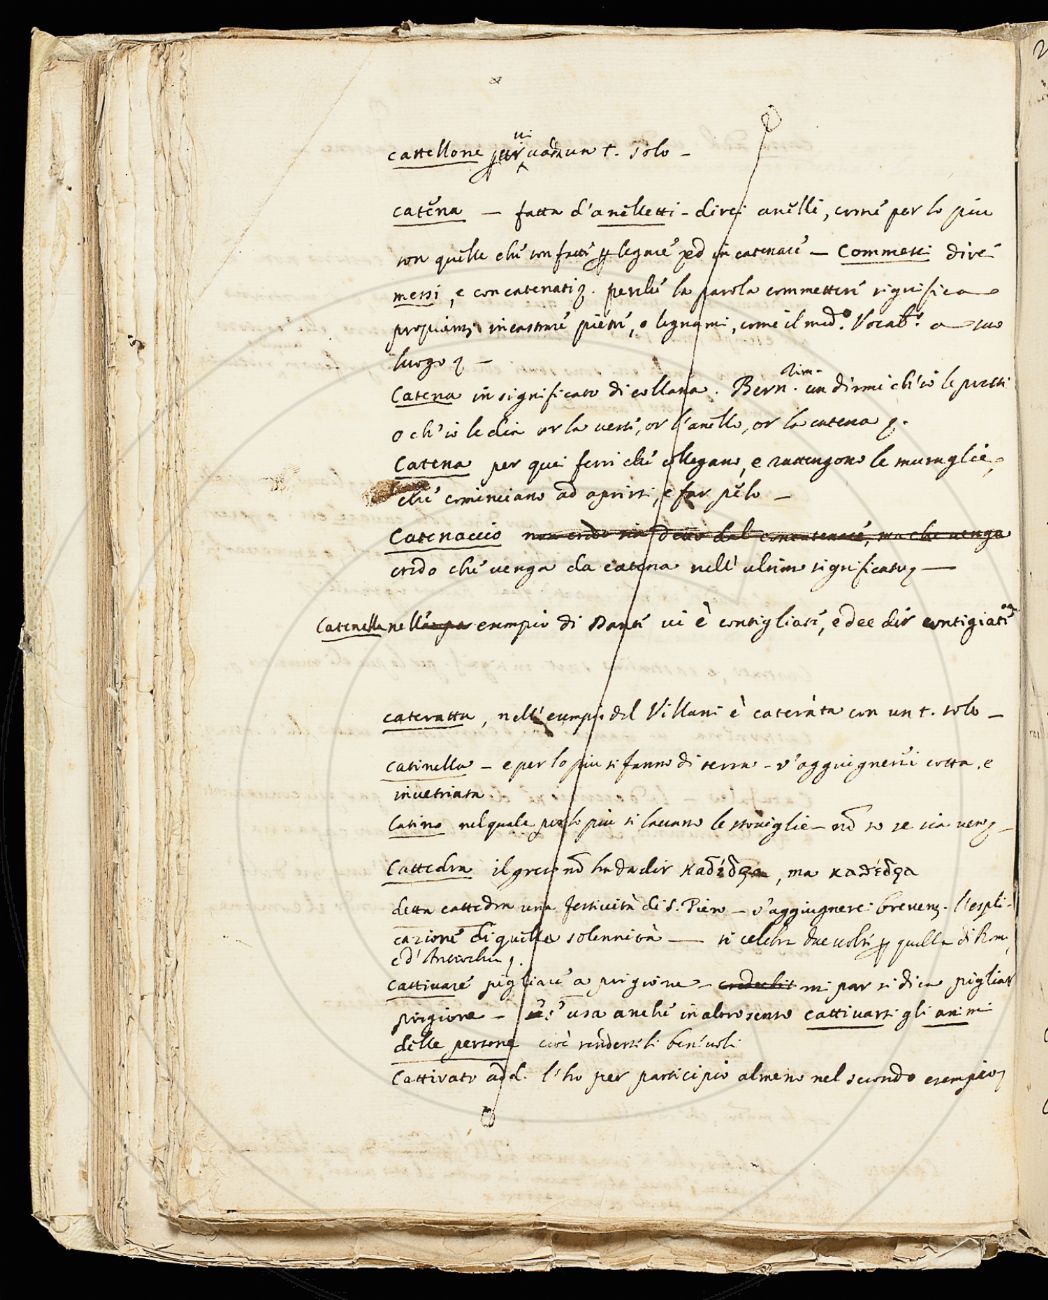 castellone vada un t. solo -
catena - fatta d'anelletti - direi anelli, come per lo più
son quelle che son fatte legare ed incatenare - Commessi dire
messi, e concatenati. perché la parola commettere significa
incastrare pietre, o legnami, come il med.º Vocab.º a suo
luogo -
Catena in significato di collana. Bern. rim. un dirmi ch'io le presti
o ch'io le dia or la veste, or l'anello, or la catena.
Catena per quei ferri che collegano, e rattengono le muraglie,
che cominciano ad aprirsi, e far pelo -
Catenaccio non credo sia detto dal concatenare, ma che venga
credo che venga da catena nell'ultimo significato -
Catenella nell' esempio di Dante vi è contigliate, e dee dir contigiate
cateratta, nell'esempio del Villani è caterata con un t. solo -
catinella - e per lo più si fanno di terra - v'aggiugnerei cotta, e
invetriata.
Catino nel quale per lo più si lavano le stoviglie - nō so se sia vero -
Cattedra il greco nō ha da dir , ma
detta cattedra una festività di S. Piero - v'aggiugnerei brevem. l'espli-
cazione di quella solennità - si celebra due volte quella di Rom.
e d'Antiochia.
Cattivare pigliare a prigione - mi par si dica pigliar
prigione - s'usa anche in altro senso cattivarsi gli animi
delle persone cioè renderseli benevoli
Cattivato add. l'ho per participio almeno nel secondo esempio